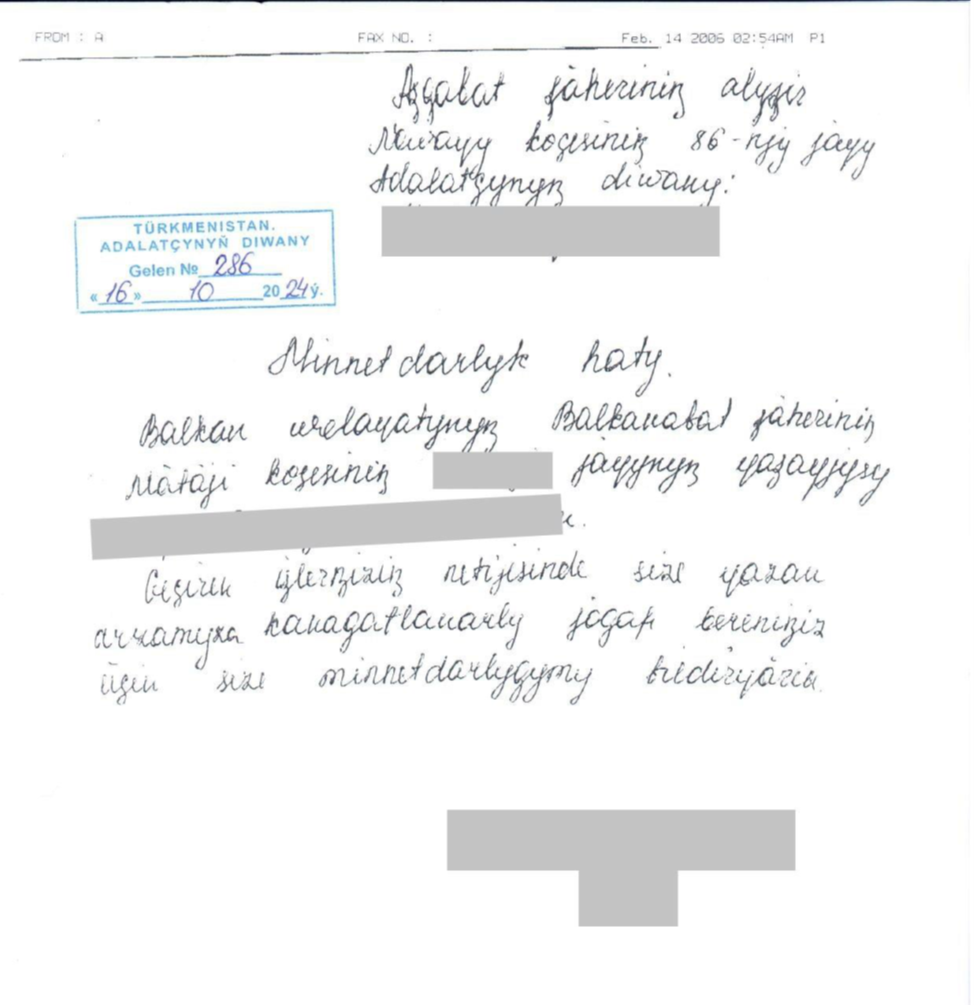 FROM : A FAX NO. : Feb. 14 2006 02:54AM P1
Aşgabat şäheriniň alyşir
Nawaýy koçesiniň 86-njy jaýy
Adalatçynyň diwany:
TÜRKMENISTAN.
ADALATÇYNYŇ DIWANY
Gelen № 286
«16» 10 2024ý.
Minnetdarlyk haty.
Balkan welaýatynyň Balkanabat şäheriniň
Mätäji koçesiniň jaýynyň ýaşaýjysy
Geçiren işleriziň netijisinde size ýazan
arzamyza kanagatlanarly jogap bereniňiz
üçin size minnetdarlygymy bildirýärin.